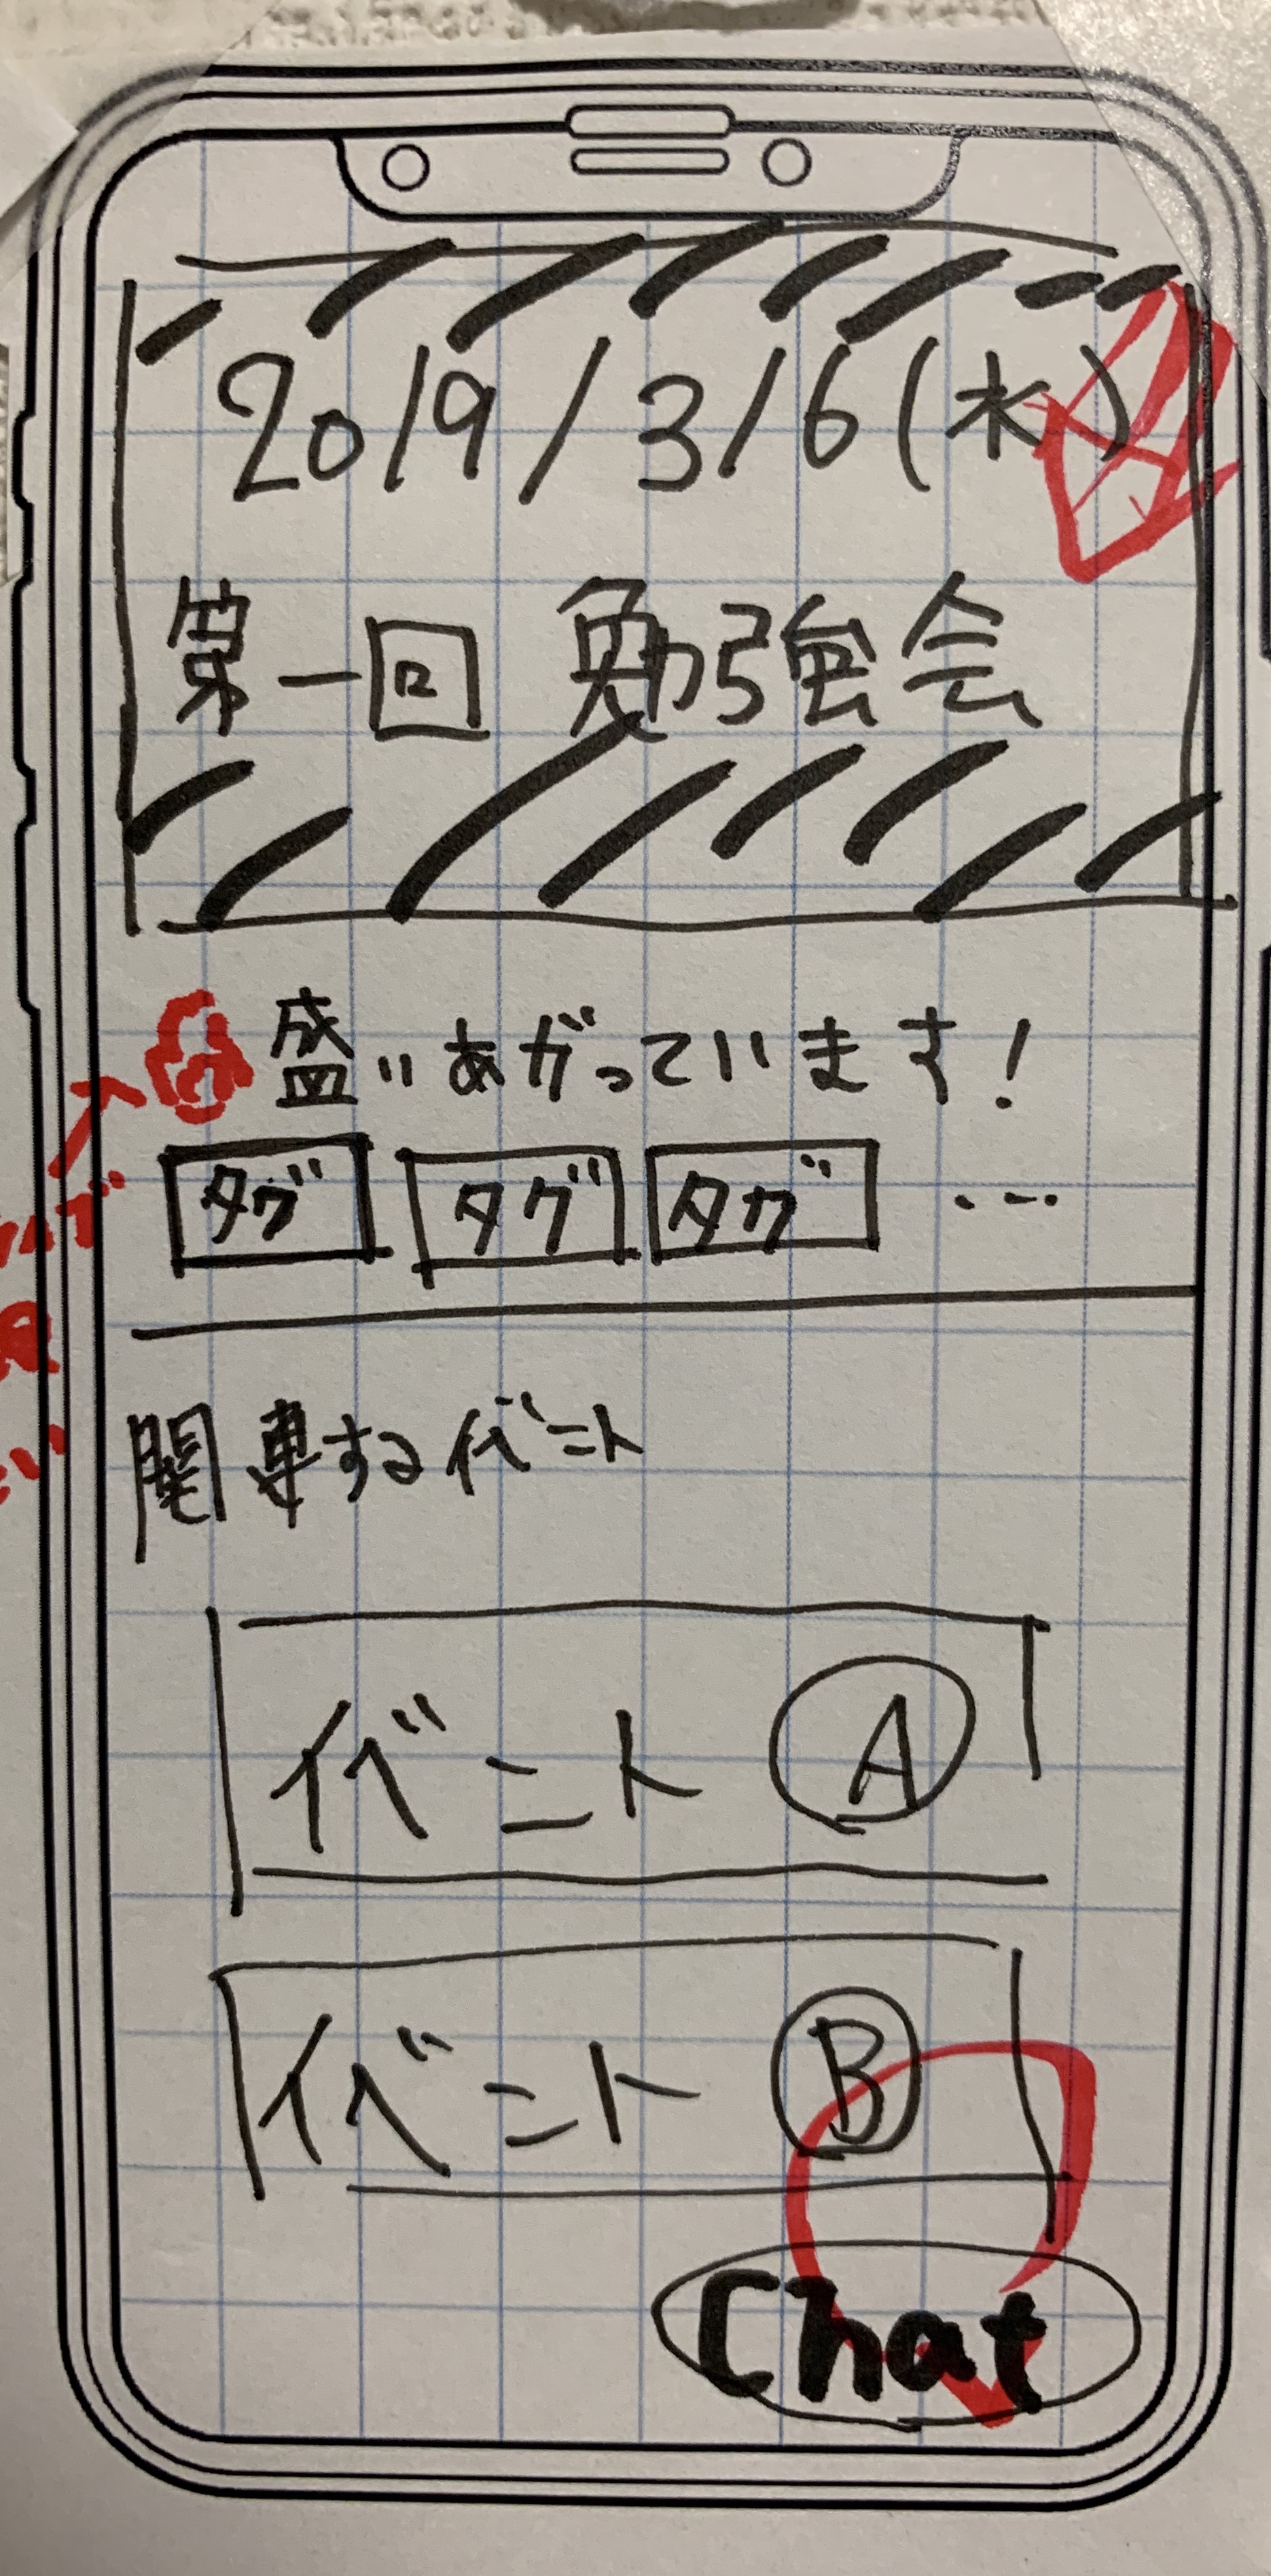 2019/3/6(水)
第一回 勉強会
盛りあがっています!
タグ タグ タグ ...
関専するイベント
イベント Ⓐ
イベント Ⓑ
Chat